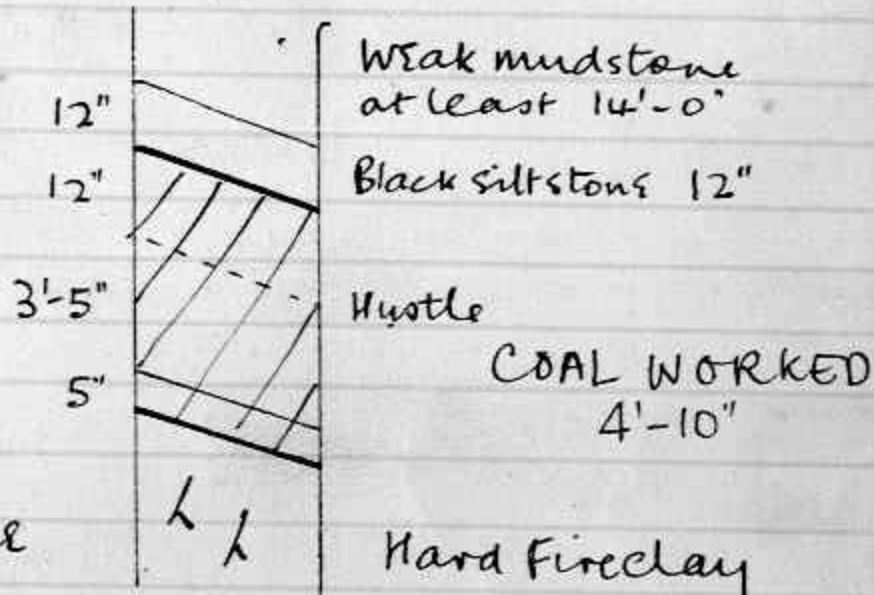 Weak mudstone
12" at least 14'-0"
12" Black siltstone 12"
3'-5" Hustle
COAL WORKED
5" 4'-10"
Hard Fireclay